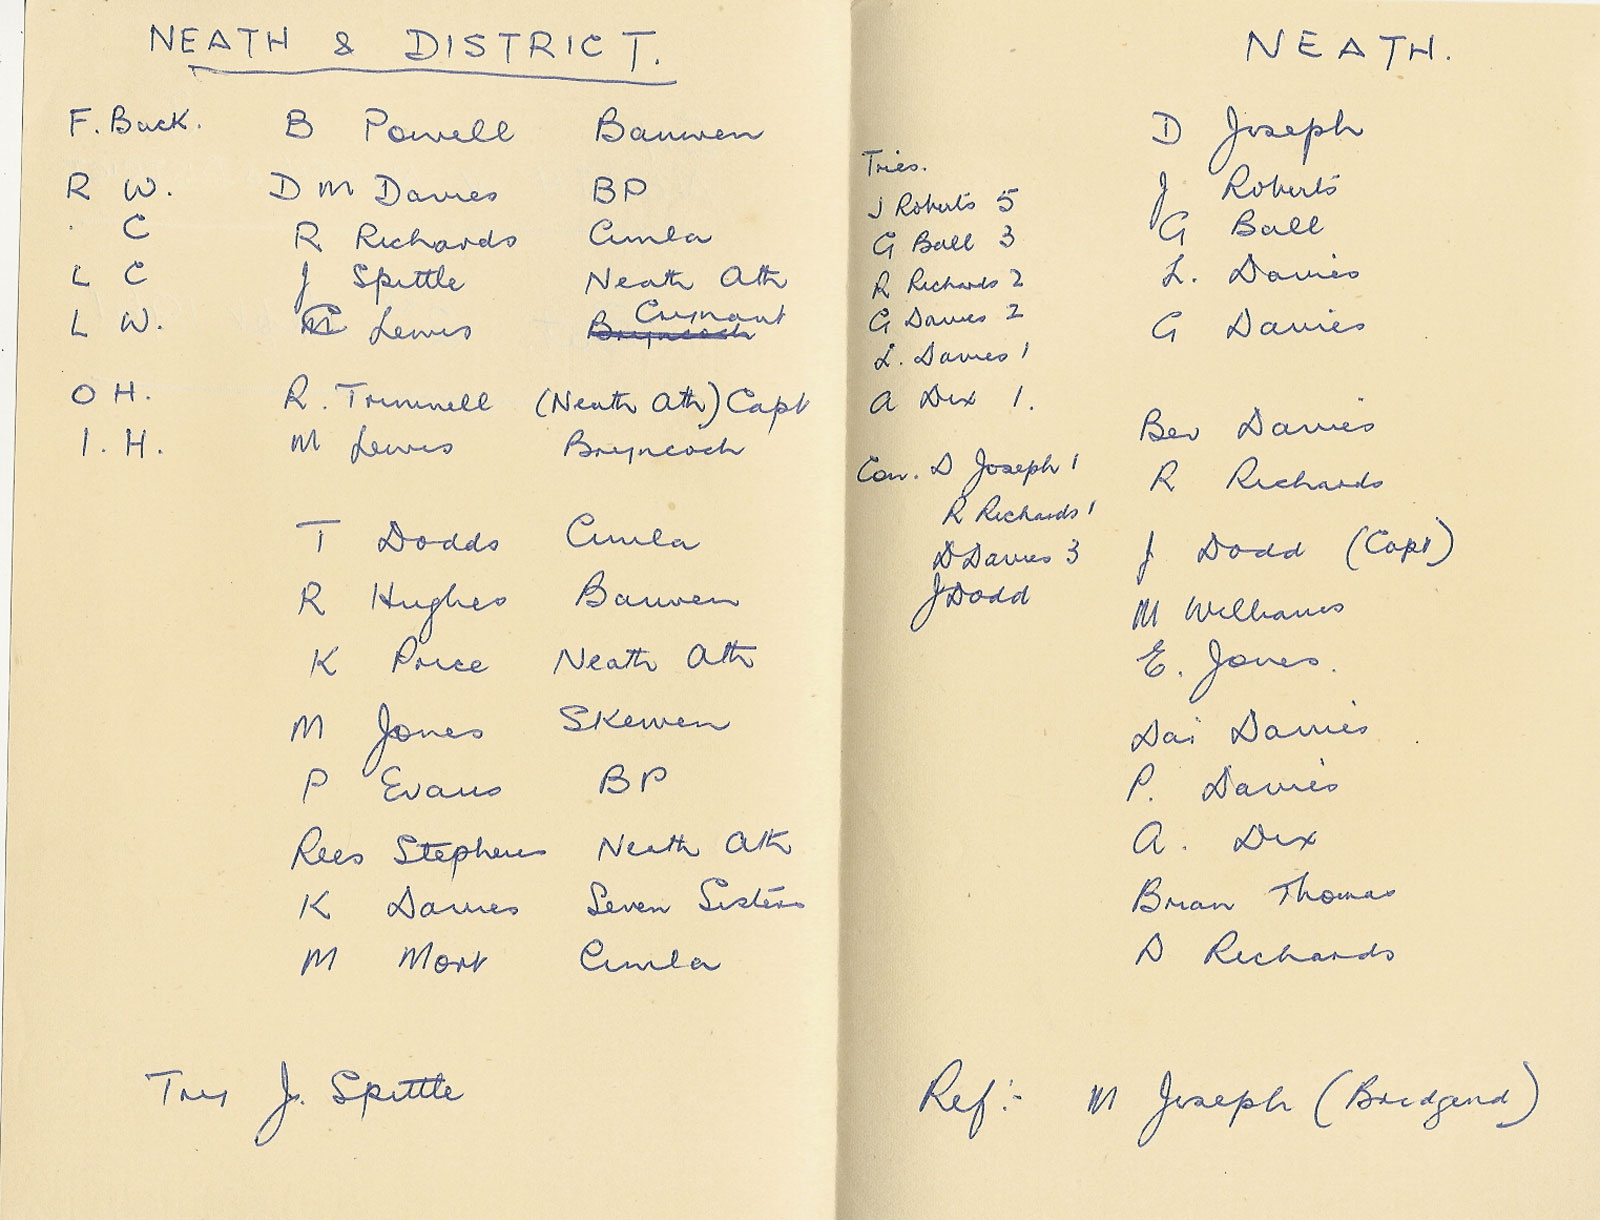 NEATH & DISTRICT.
F. Back. B Powell Banwen
R W. D M Davies BP
C R Richards Cimla
L C J Spittle Neath Ath
L W. C Lewis Crynant
O H. R. Trimnell (Neath Ath) Capt
I. H. M Lewis Bryncoch
T Dodds Cimla
R Hughes Banwen
K Price Neath Ath
M Jones Skewen
P Evans BP
Rees Stephens Neath Ath
K Davies Seven Sisters
M Mort Cimla
Try J. Spittle
NEATH.
D Joseph
J Roberts
G Ball
L. Davies
G Davies
Bev Davies
R Richards
J Dodd (Capt)
M Williams
E. Jones.
Dai Davies
P. Davies
A. Dix
Brian Thomas
D Richards
Tries.
J Roberts 5
G Ball 3
R Richards 2
G Davies 2
L. Davies 1
A Dix 1.
Con. D Joseph 1
R Richards 1
D Davies 3
J Dodd
Ref:- M Joseph (Bridgend)